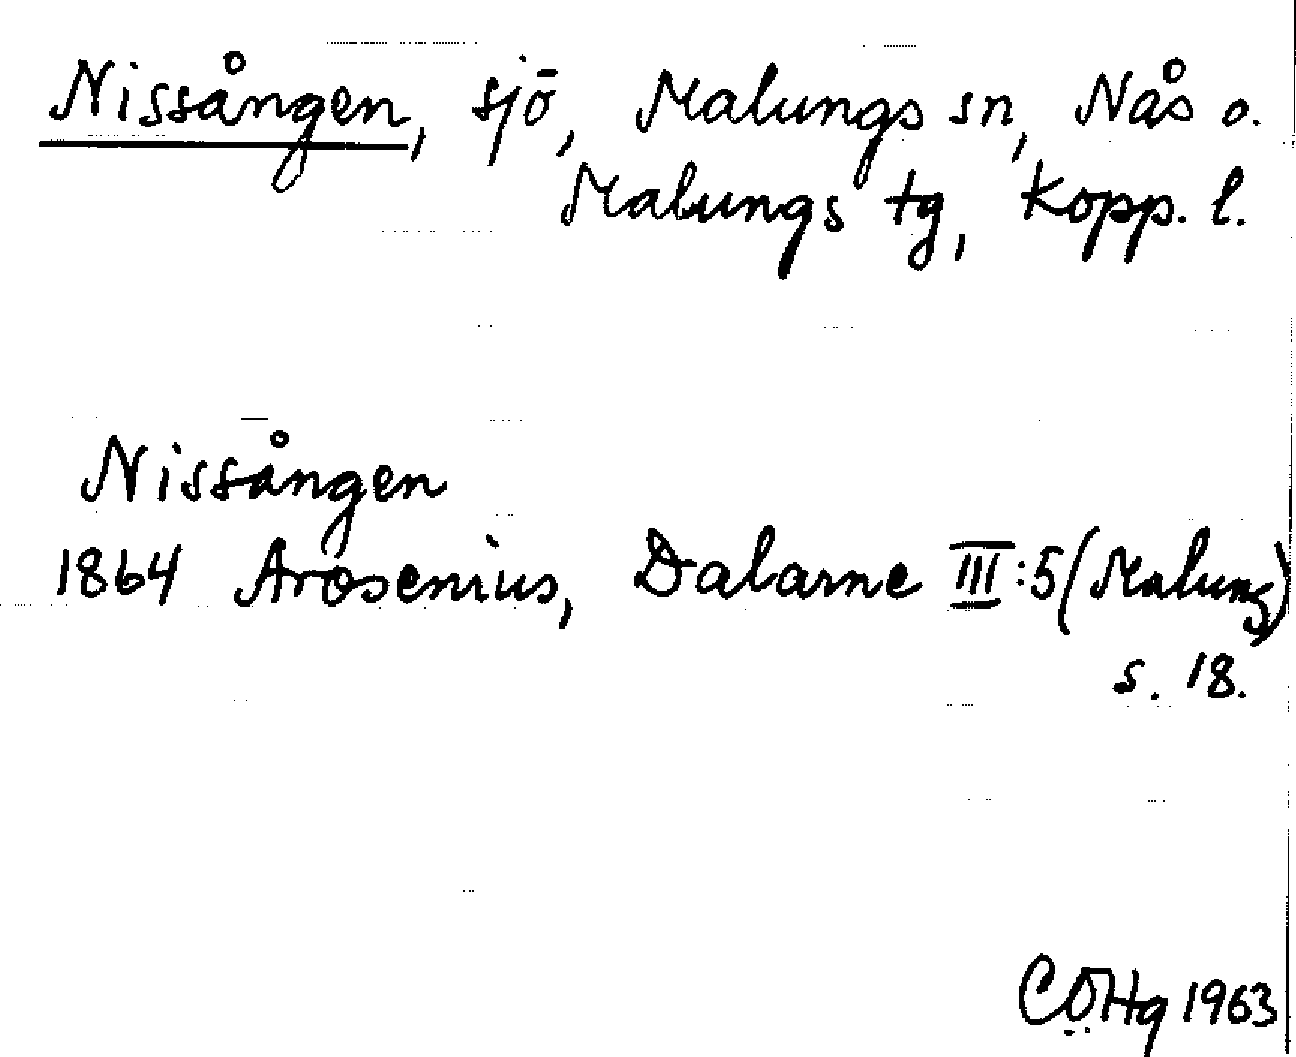 Nissången, sjö, Malungs sn, Nås o.
Malungs tg, Kopp. l.
Nissången
1864 Arosenius, Dalarne III:5 (Malung)
s. 18.
CÖHg 1963